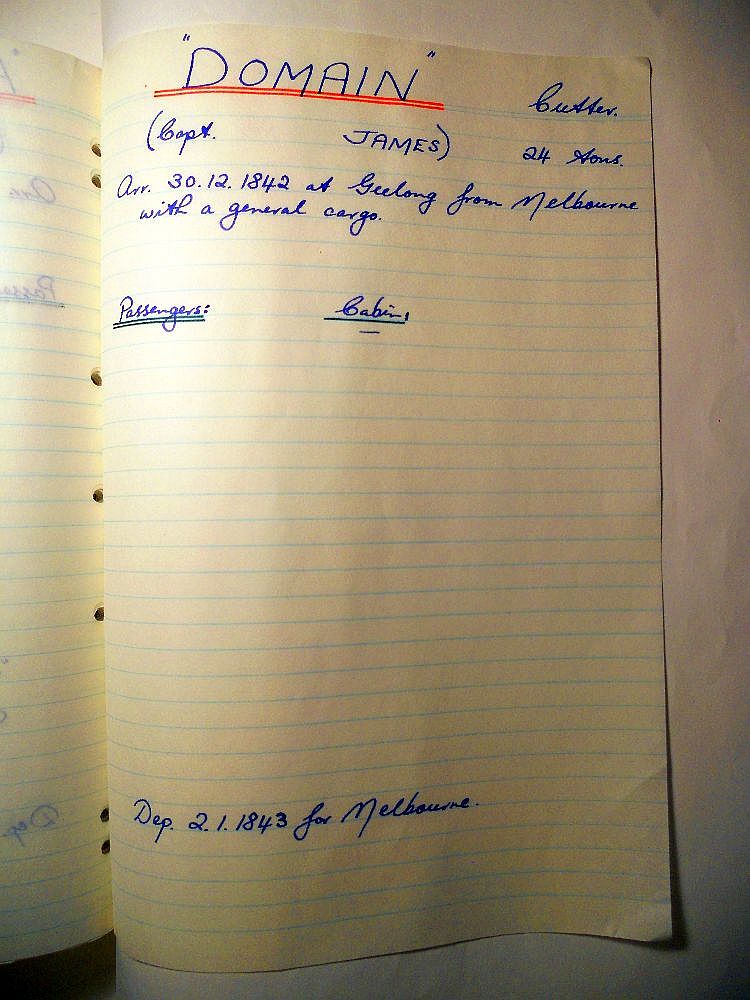 "DOMAIN"
Cutter.
(Capt. JAMES)
24 tons.
Arr. 30.12.1842 at Geelong from Melbourne
with a general cargo.
Passengers: Cabin,
—
Dep. 2.1.1843 for Melbourne.